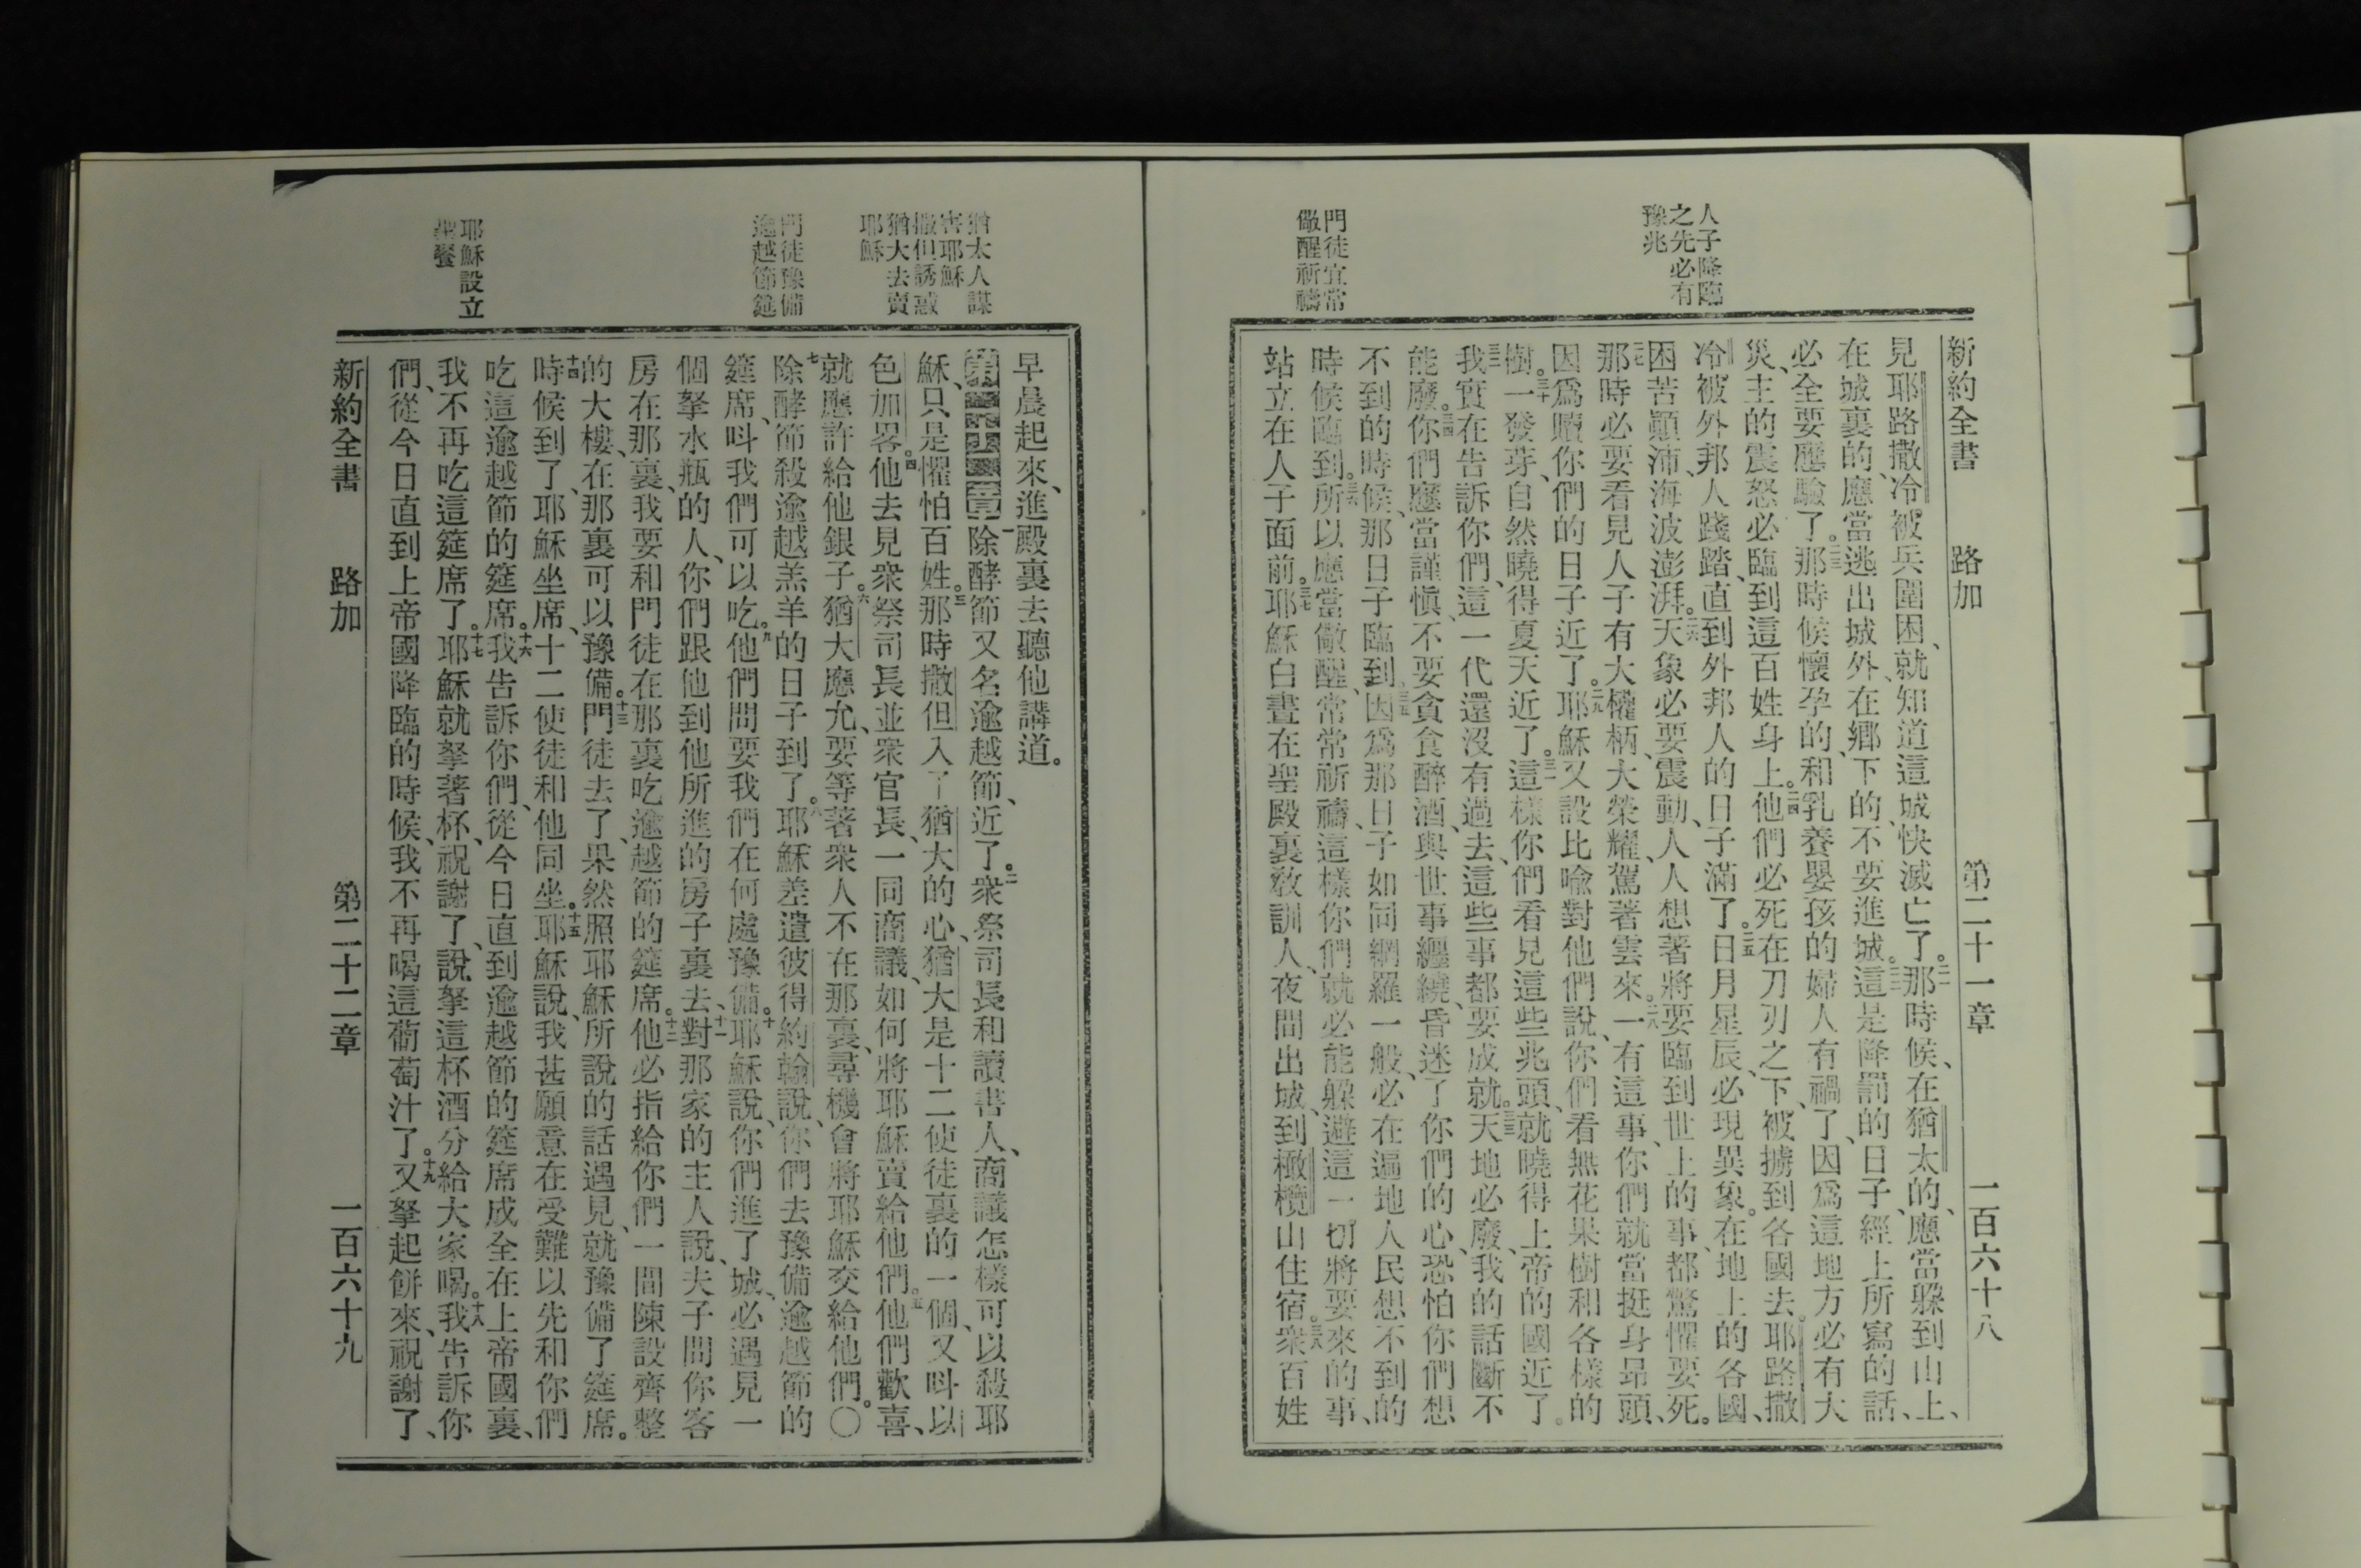 新約全書　路加　第二十一章　一百六十八
人子降臨
之先必有
豫兆
門徒宜常
儆醒祈禱
見耶路撒冷被兵圍困、就知道這城快滅亡了。二一那時候、在猶太的、應當躱到山上、
在城裏的、應當逃出城外、在鄕下的、不要進城。二二這是降罰的日子、經上所寫的話、
必全要應驗了。二三那時候懷孕的、和乳養嬰孩的婦人有禍了、因爲這地方必有大
災、主的震怒必臨到這百姓身上。二四他們必死在刀刃之下、被擄到各國去。耶路撒
冷被外邦人踐踏、直到外邦人的日子滿了。二五日月星辰、必現異象。在地上的各國、
困苦顚沛、海波澎湃。二六天象必要震動、人人想著將要臨到世上的事、都驚懼要死。
二七那時必要看見人子有大權柄、大榮耀、駕著雲來。二八一有這事、你們就當挺身昻頭、
因爲贖你們的日子近了。二九耶穌又設比喩對他們說、你們看無花果樹和各樣的
樹。三十一發芽、自然曉得夏天近了。三一這樣你們看見這些兆頭、就曉得上帝的國近了。
三二我實在告訴你們、這一代還沒有過去、這些事都要成就。三三天地必廢、我的話斷不
能廢。三四你們應當謹愼、不要貪食醉酒、與世事纏繞、昏迷了你們的心、恐怕你們想
不到的時候、那日子臨到。三五因爲那日子如同網羅一般、必在遍地人民想不到的
時候臨到。三六所以應當儆醒、常常祈禱、這樣你們就必能躱避這一切將要來的事、
站立在人子面前。三七耶穌白晝在聖殿裏敎訓人、夜間出城、到橄欖山住宿。三八衆百姓
猶太人謀
害耶穌
撒但誘惑
猶大去賣
耶穌
門徒豫備
逾越節筵
耶穌設立
聖餐
早晨起來、進殿裏去聽他講道。
第二十二章一除酵節又名逾越節、近了。二衆祭司長和讀書人、商議怎樣可以殺耶
穌、只是懼怕百姓。三那時撒但入了猶大的心、猶大是十二使徒裏的一個、又呌以
色加畧。四他去見衆祭司長並衆官長、一同商議、如何將耶穌賣給他們。五他們歡喜、
就應許給他銀子。六猶大應允、要等著衆人不在那裏、尋機會將耶穌交給他們。〇
七除酵節殺逾越羔羊的日子到了。八耶穌差遣彼得約翰說、你們去豫備逾越節的
筵席、呌我們可以吃。九他們問要我們在何處豫備。十耶穌說、你們進了城、必遇見一
個拏水瓶的人、你們跟他到他所進的房子裏去、十一對那家的主人說、夫子問你客
房在那裏、我要和門徒在那裏吃逾越節的筵席。十二他必指給你們一間陳設齊整
的大樓、在那裏可以豫備。十三門徒去了、果然照耶穌所說的話遇見、就豫備了筵席。
十四時候到了、耶穌坐席、十二使徒和他同坐。十五耶穌說、我甚願意在受難以先和你們
吃這逾越節的筵席。十六我告訴你們、從今日直到逾越節的筵席成全在上帝國裏、
我不再吃這筵席了。十七耶穌就拏著杯、祝謝了、說、拏這杯酒分給大家喝。十八我告訴你
們、從今日直到上帝國降臨的時候、我不再喝這葡萄汁了。十九又拏起餅來、祝謝了、
新約全書　路加　第二十二章　一百六十九